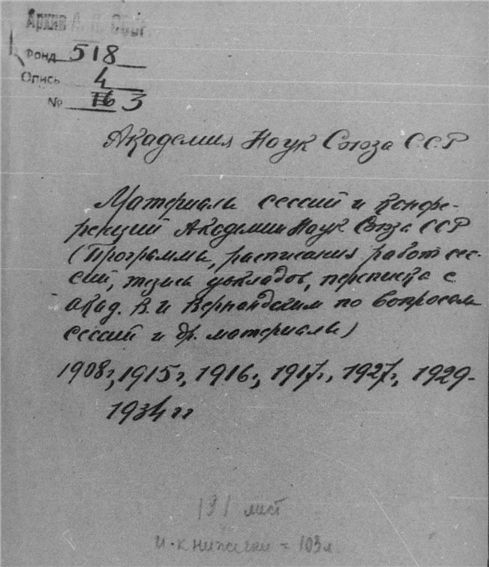 Архив А. Н. СССР
Фонд 518
Опись 4
№ 3
Академия Наук Союза ССР
Материалы сессий и конфе-
ренций Академии Наук Союза ССР
(Программы, расписания работ сес-
сий, тезисы докладов, переписка с
акад. В. И Вернандским по вопросам
сессий и др. материалы)
1908г, 1915г, 1916г, 1917г, 1927г, 1929-
1934 гг
191 лист
и книжечки = 103л